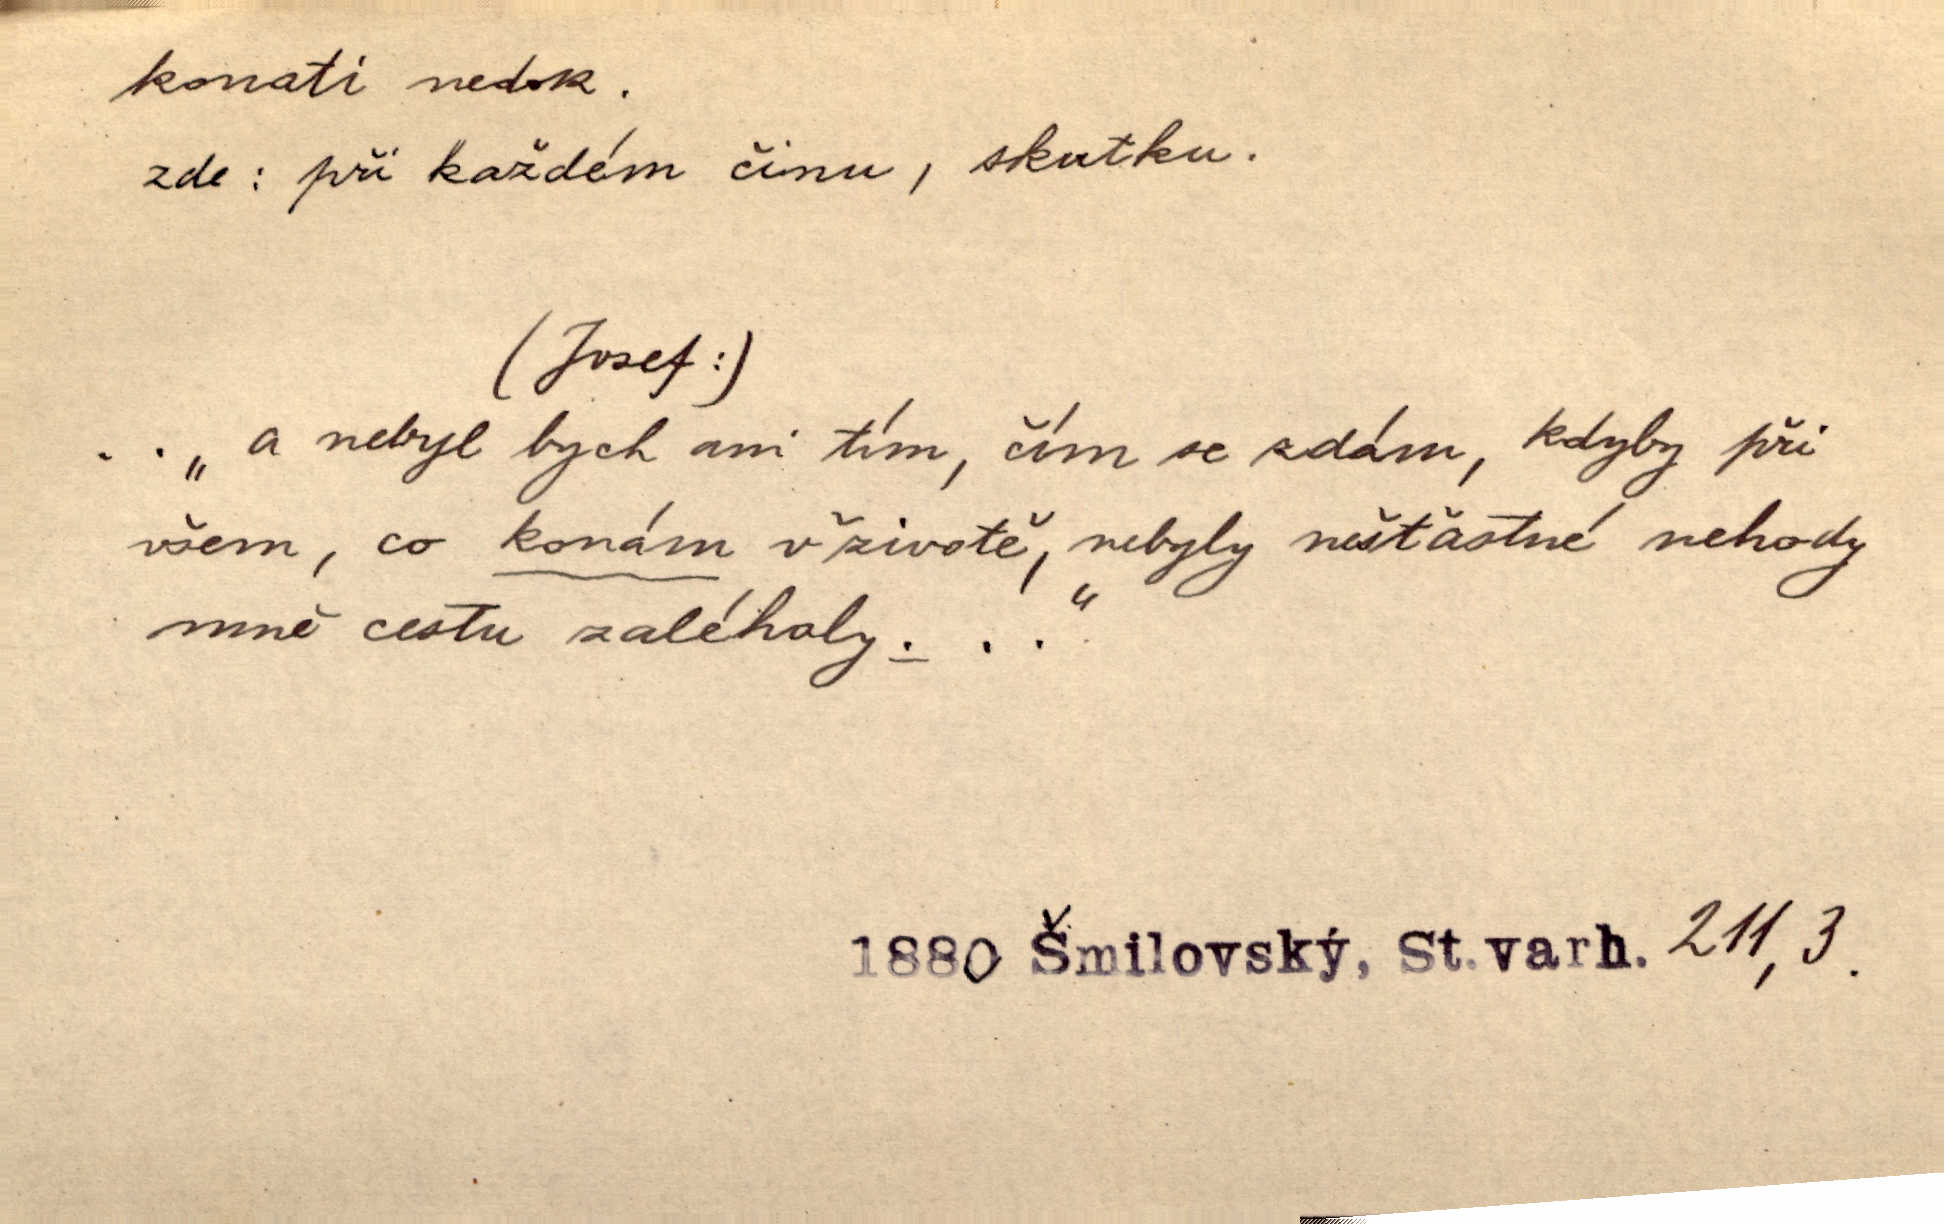 konati nedok.
zde: při každém činu, skutku.
(Josef:)
. . „ a nebyl bych ani tím, čím se zdám, kdyby při
všem, co konám v životě, nebyly nešťastné nehody
mně cestu zaléholy. . . "
1880 Šmilovský, St. varh. 211, 3.